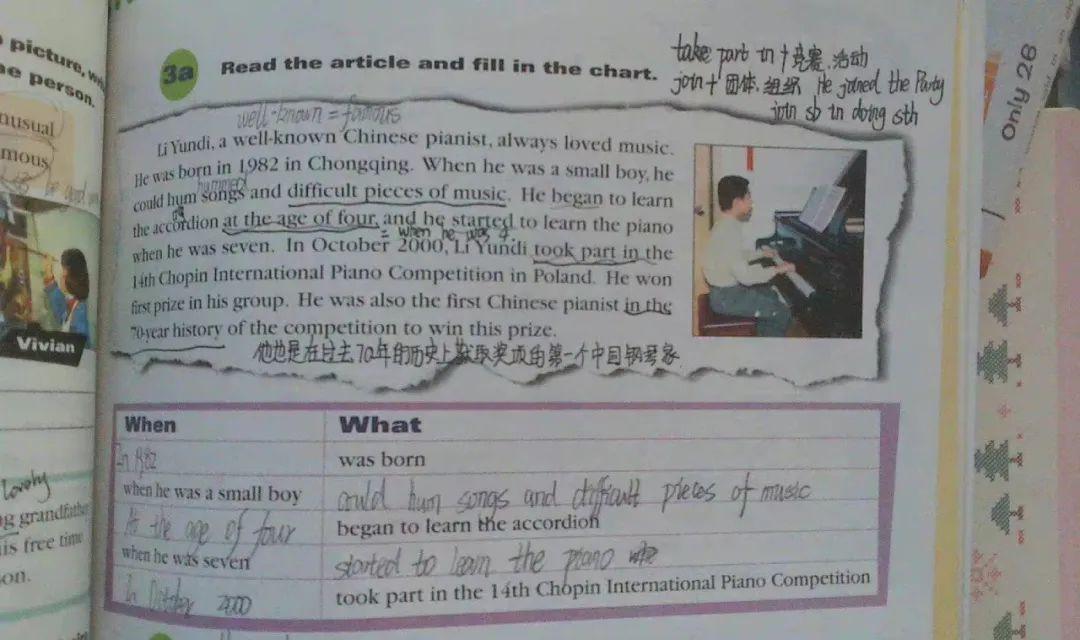 picture,
person.
nusual
mous
Vivian
lovely
g grandfather
is free time
on.
3a Read the article and fill in the chart.
take part in + 竞赛.活动
join + 团体.组织 He joined the Party
join sb in doing sth
well-known = famous
Li Yundi, a well-known Chinese pianist, always loved music.
He was born in 1982 in Chongqing. When he was a small boy, he
hummed
could hum songs and difficult pieces of music. He began to learn
the accordion at the age of four, and he started to learn the piano
= when he was 4.
when he was seven. In October 2000, Li Yundi took part in the
14th Chopin International Piano Competition in Poland. He won
first prize in his group. He was also the first Chinese pianist in the
70-year history of the competition to win this prize.
他也是在过去70年的历史上获取奖项的第一个中国钢琴家
When What
In 1982 was born
when he was a small boy could hum songs and difficult pieces of music
At the age of four began to learn the accordion
when he was seven started to learn the piano
In October 2000 took part in the 14th Chopin International Piano Competition
Only 26